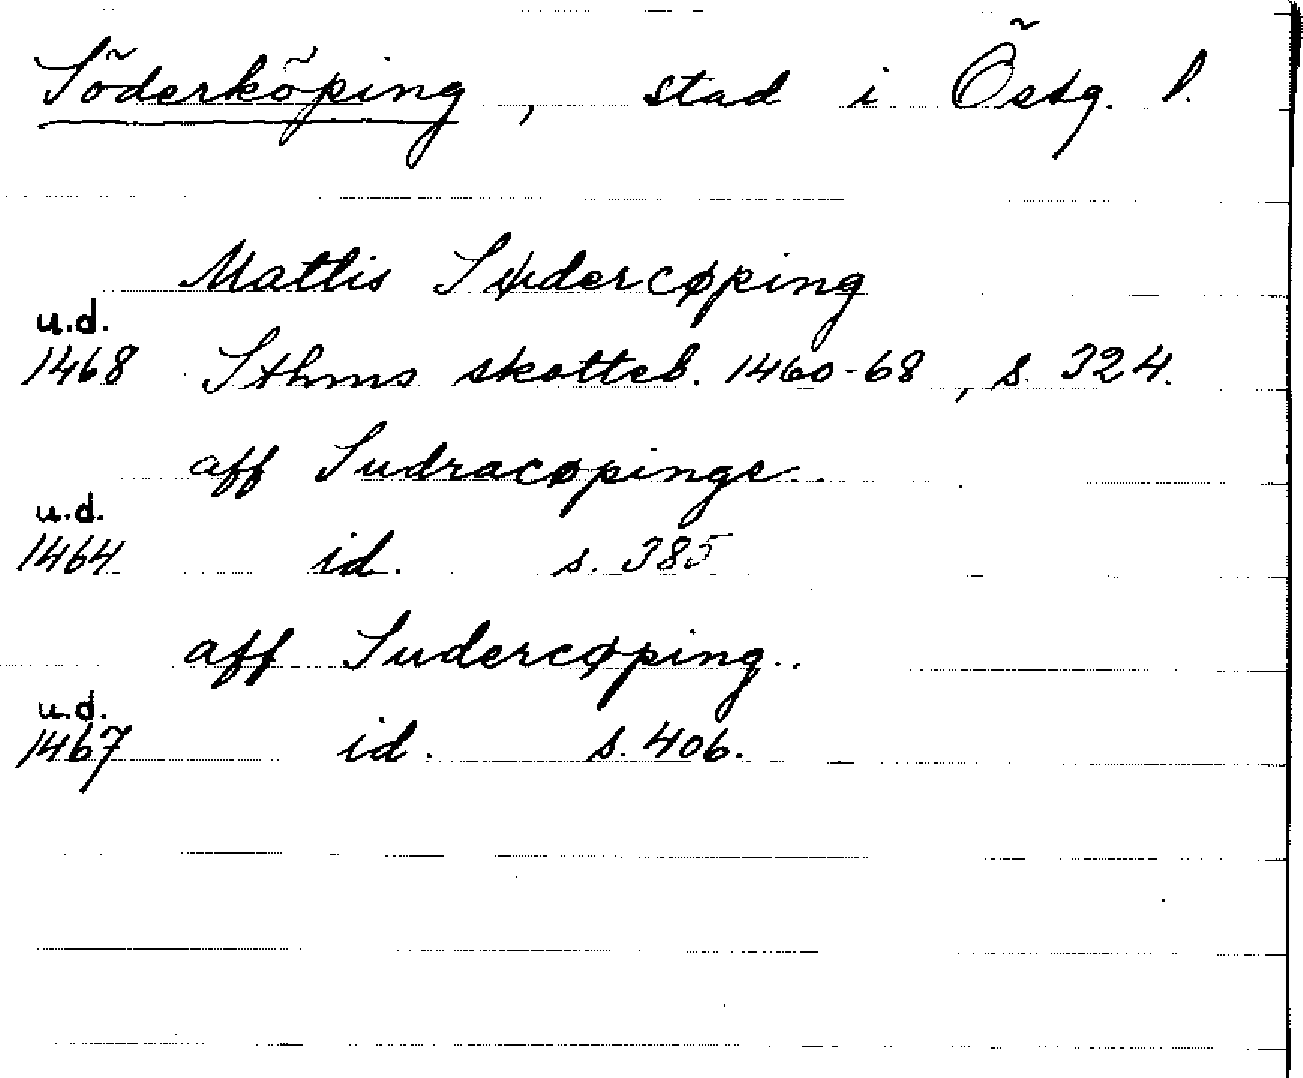 Söderköping, stad i Östg. l.
Mattis Sødercøping
u.d.
1468 Sthms skatteb. 1460-68, s. 324.
aff Sudracøpinge..
u.d.
1464 id. s. 385
aff Sudercøping..
u.d.
1467 id. s. 406.